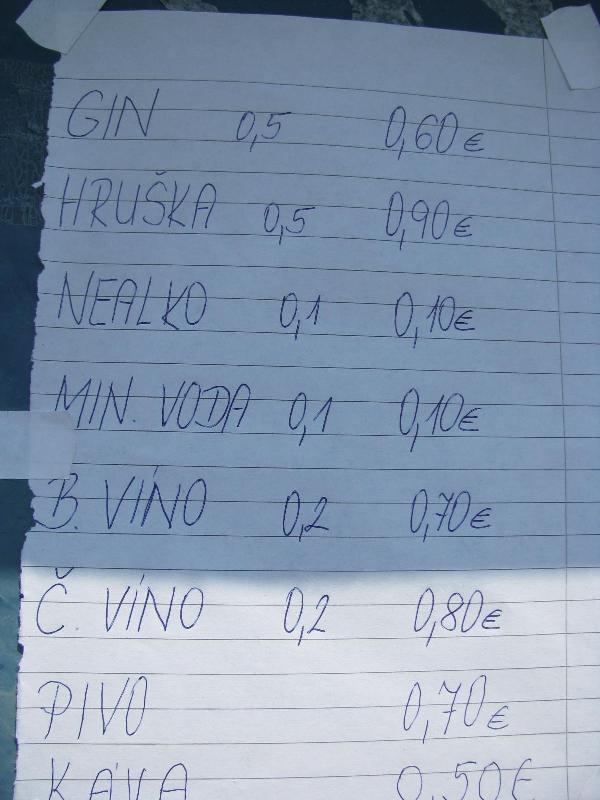 GIN 0,5 0,60€
HRUŠKA 0,5 0,90€
NEALKO 0,1 0,10€
MIN. VODA 0,1 0,10€
B. VÍNO 0,2 0,70€
Č. VÍNO 0,2 0,80€
PIVO 0,70€
KÁVA 0,50€